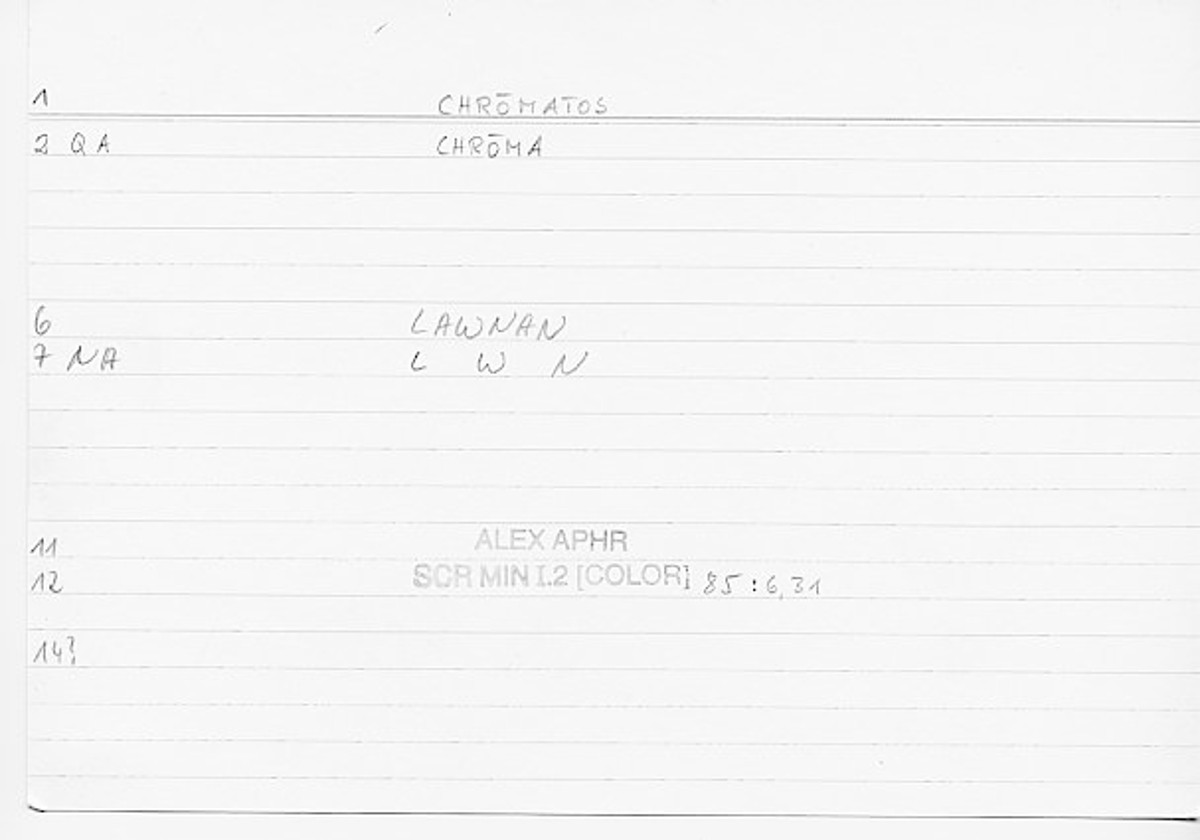 1 CHRŌMATOS
2 QA CHRŌMA
6 LAWNAN
7 NA L W N
11 ALEX APHR
12 SCR MIN I.2 [COLOR] 85:6,31
14?